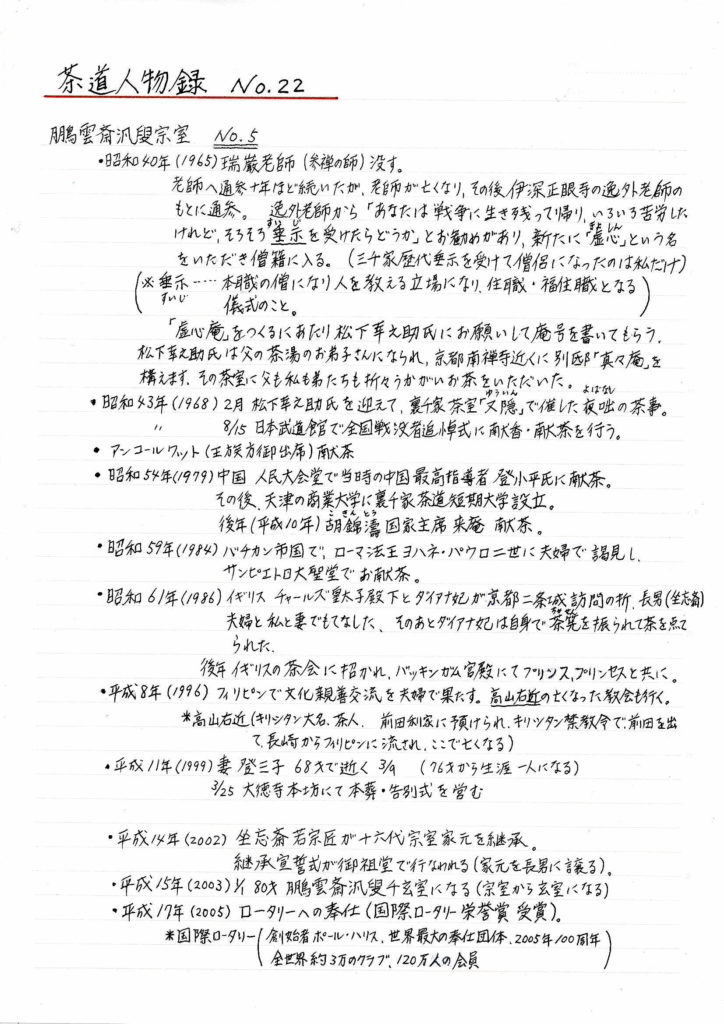 茶道人物録 No.22
鵬雲斎汎叟宗室 No.5
・昭和40年(1965)瑞巌老師(参禅の師)没す。
老師へ通参十年ほど続いたが、老師が亡くなり、その後、伊深正眼寺の逸外老師の
もとに通参。 逸外老師から「あなたは戦争に生き残って帰り、いろいろ苦労した
けれど、そろそろ垂示(すいじ)を受けたらどうか」とお勧めがあり、新たに「虚心(きょしん)」という名
をいただき僧籍に入る。(三千家歴代垂示を受けて僧侶になったのは私だけ)
(※垂示(すいじ)……本職の僧になり人を教える立場になり、住職・福住職となる
儀式のこと。)
「虚心庵」をつくるにあたり松下幸之助氏にお願いして庵号を書いてもらう。
松下幸之助氏は父の茶湯のお弟子さんになられ、京都南禅寺近くに別邸「真々庵」を
構えます。その茶室に父も私も弟たちも折々うかがいお茶をいただいた。
・昭和43年(1968)2月 松下幸之助氏を迎えて、裏千家茶室「又隠(ゆういん)」で催した夜咄(よばなし)の茶事。
〃 8/15 日本武道館で全国戦没者追悼式に献香・献茶を行う。
・アンコールワット(王族方御出席)献茶
・昭和54年(1979)中国 人民大会堂で当時の中国最高指導者 登小平氏に献茶。
その後、天津の商業大学に裏千家茶道短期大学設立。
後年(平成10年)胡錦濤(こきんとう)国家主席 来庵 献茶。
・昭和59年(1984)バチカン市国で、ローマ法王ヨハネ・パウロ二世に夫婦で謁見し、
サンピエトロ大聖堂でお献茶。
・昭和61年(1986)イギリス チャールズ皇太子殿下とダイアナ妃が京都二条城訪問の折、長男(坐忘斎)
夫婦と私と妻でもてなした、そのあとダイアナ妃は自身で茶筅(ちゃせん)を振られて茶を点て
られた。
後年イギリスの茶会に招かれ、バッキンガム宮殿にてプリンス、プリンセスと共に。
・平成8年(1996)フィリピンで文化親善交流を夫婦で果たす。高山右近の亡くなった教会も行く。
*高山右近(キリシタン大名、茶人、 前田利家に預けられ、キリシタン禁教令で、前田を出
て、長崎からフィリピンに流され、ここで亡くなる)
・平成11年(1999)妻 登三子 68才で逝く 3/9 (76才から生涯一人になる)
3/25 大徳寺本坊にて本葬・告別式を営む
・平成14年(2002) 坐忘斎若宗匠が十六代宗室家元を継承。
継承宣誓式が御祖堂で行なわれる(家元を長男に譲る)。
・平成15年(2003)1/1 80才 鵬雲斎汎叟千玄室になる(宗室から玄室になる)
・平成17年(2005) ロータリーへの奉仕(国際ロータリー栄誉賞 受賞)。
*国際ロータリー(創始者ポール・ハリス、世界最大の奉仕団体、2005年100周年
全世界約3万のクラブ、120万人の会員)